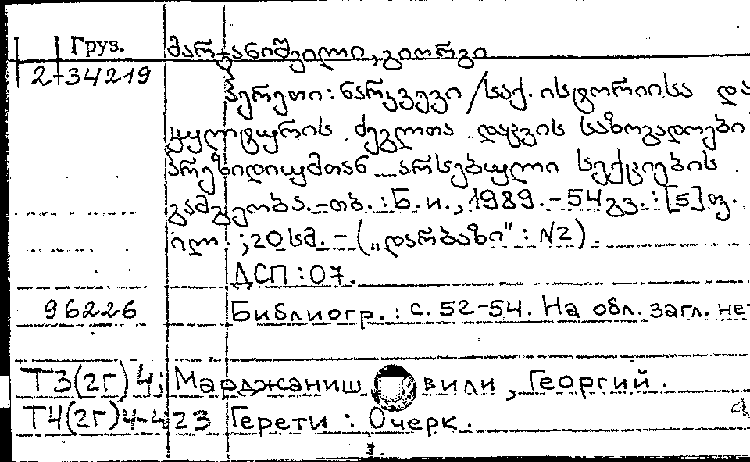 Груз. მარჯანიშვილი, გიორგი
2-34219
ჰერეთი: ნარკვევი /საქ. ისტორიისა და
კულტურის ძეგლთა დაცვის საზოგადოების
პრეზიდიუმთან არსებული სექციების
გამგეობა. - თბ. : Б. и., 1989. - 54 გვ. : [5] ფ.
ილ. ; 20 სმ. - („დარბაზი" : N2).
ДСП : 07.
96226 Библиогр. : с. 52-54. На обл. загл. не
Т3(2Г)4; Марджаниш вили, Георгий.
Т4(2Г)4-423 Герети : Очерк.